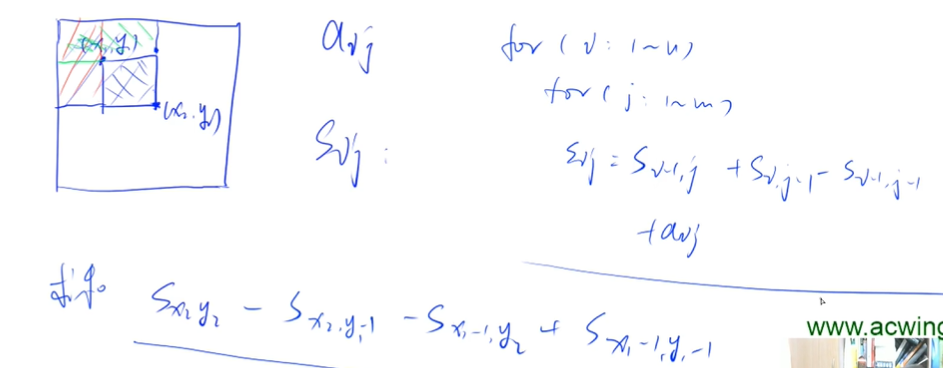 (x₁,y₁)
(x₂,y₂)
aᵢⱼ
Sᵢⱼ:
for (i: 1~n)
for (j: 1~m)
Sᵢⱼ = Sᵢ₋₁,ⱼ + Sᵢ,ⱼ₋₁ - Sᵢ₋₁,ⱼ₋₁
+aᵢⱼ
Sx₂y₂ - Sx₂,y₁-1 - Sx₁-1,y₂ + Sx₁-1,y₁-1
www.acwing